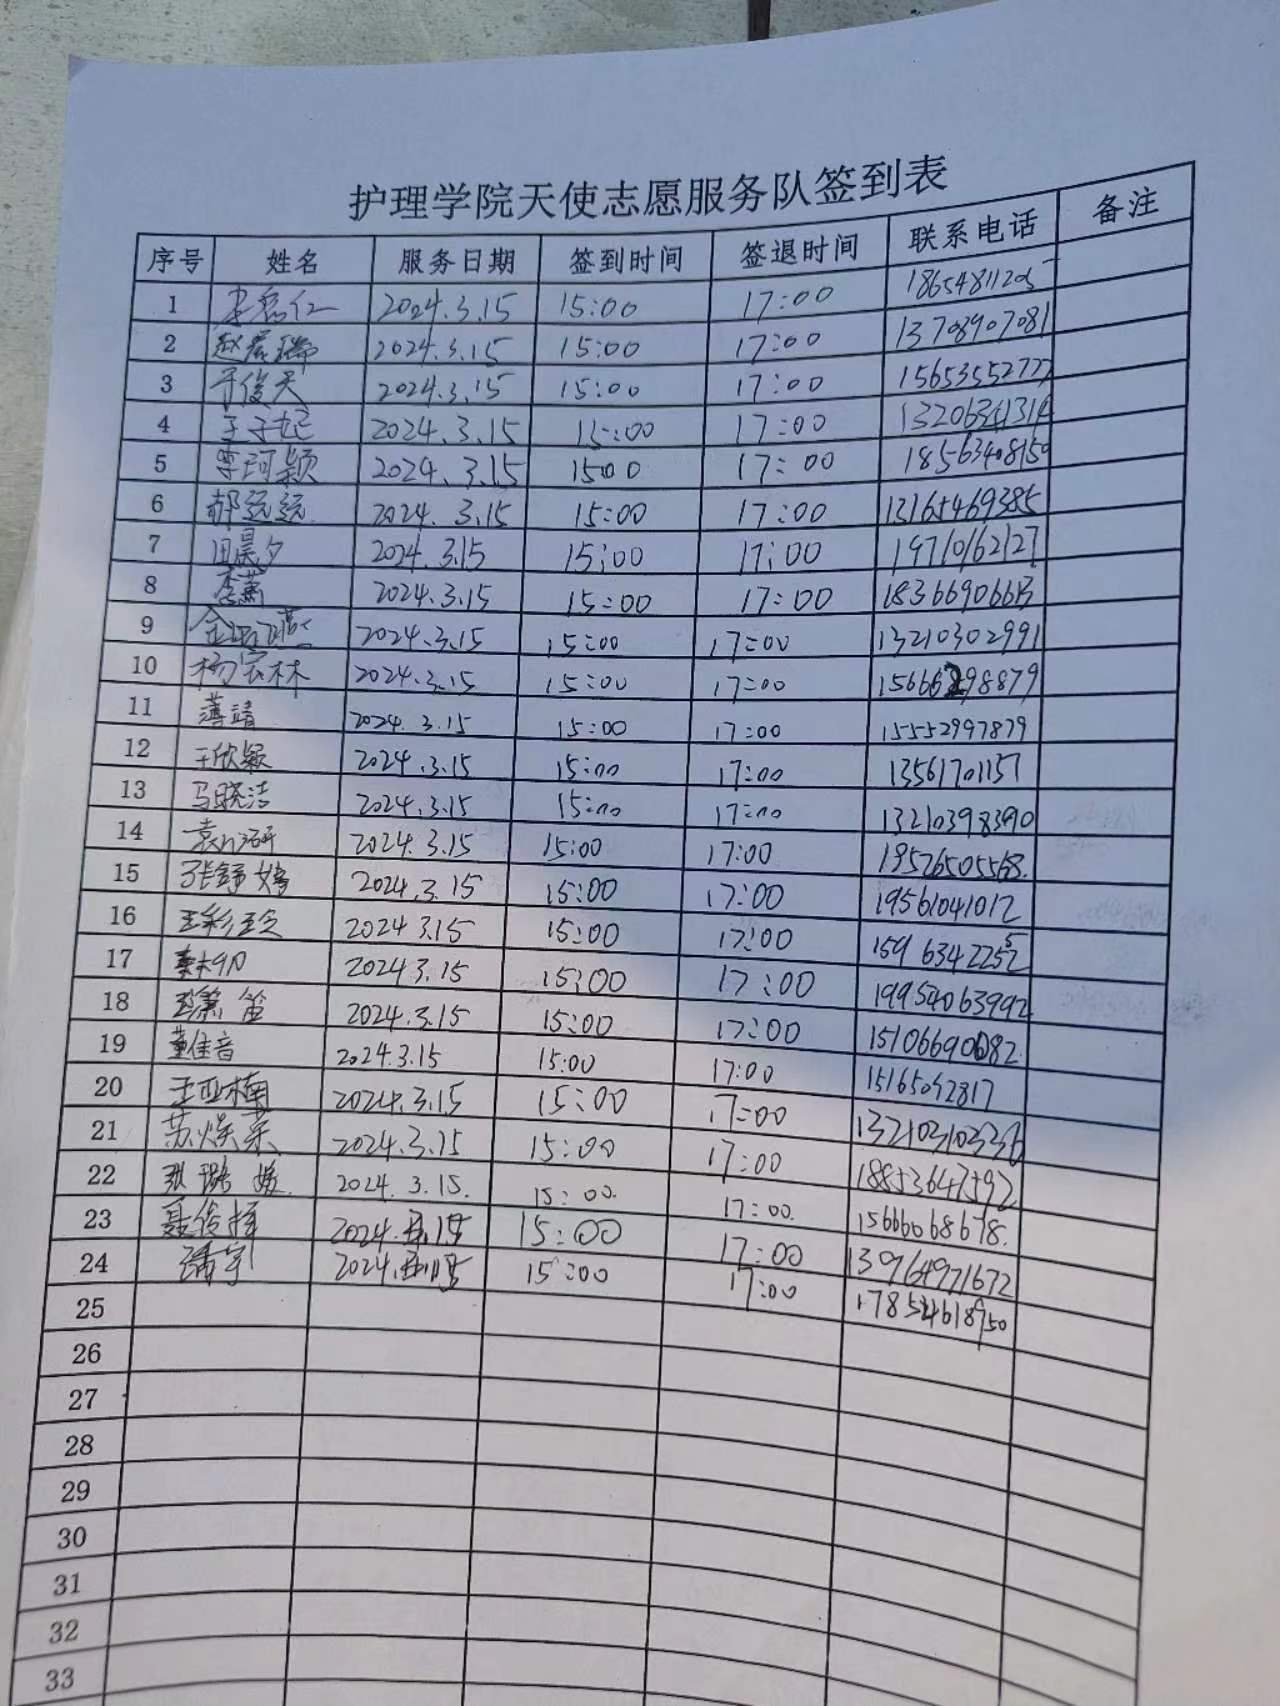 护理学院天使志愿服务队签到表
序号 姓名 服务日期 签到时间 签退时间 联系电话 备注
1 2024.3.15 15:00 17:00
2 赵 2024.3.15 15:00 17:00 13708907081
3 于俊昊 2024.3.15 15:00 17:00 15653552777
4 王子妃 2024.3.15 15:00 17:00 13206341314
5 李珂颖 2024.3.15 1500 17:00 18563408150
6 郝远远 2024.3.15 15:00 17:00 13165469385
7 田晨夕 2024.3.15 15:00 17:00 19710162127
8 李蕭 2024.3.15 15:00 17:00 18366906613
9 2024.3.15 15:00 17:00 13210302991
10 杨宏林 2024.3.15 15:00 17:00 15666298879
11 薄靖 2024.3.15 15:00 17:00 15552997879
12 王欣颖 2024.3.15 15:00 17:00 13561701157
13 马晓洁 2024.3.15 15:00 17:00 13210398390
14 2024.3.15 15:00 17:00 19526505568.
15 张舒婷 2024.3.15 15:00 17:00 19561041012
16 2024 3.15 15:00 17:00
17 2024 3.15 15:00 17:00 19954063992
18 2024.3.15 15:00 17:00 15106690082
19 董佳音 2024.3.15 15:00 17:00 15165042817
20 王亚楠 2024.3.15 15:00 17:00 13210310336
21 苏焕荣 2024.3.15 15:00 17:00 18853647592
22 张璐媛 2024.3.15. 15:00. 17:00. 15666068678.
23 聂俊梅 15:00 17:00 13964971672
24 15:00 17:00
25
26
27
28
29
30
31
32
33